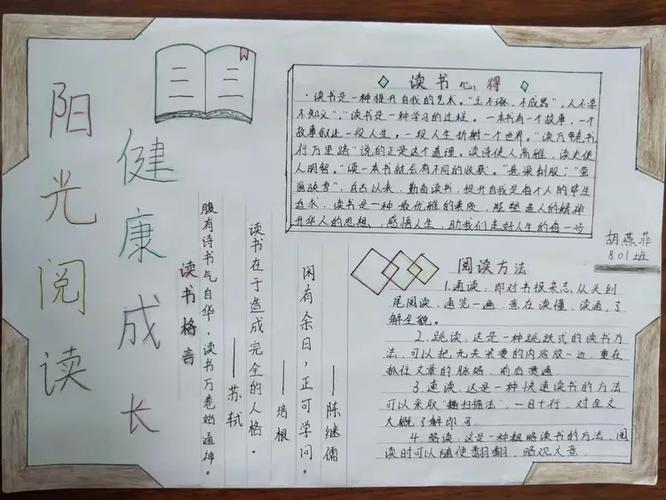 阳光阅读
健康成长
读书心得
·读书是一种提升自我的艺术。“玉不琢，不成器，人不学
不知义。”读书是一种学习的过程。一本书有一个故事，一个
故事叙述一段人生，一段人生折射一个世界。“读万卷书
行万里路”说的正是这个道理。读诗使人高雅，读史使
人明智。读一本书就会有不同的收获。“悬梁刺股”，“萤
窗映雪”，自古以来，勤奋读书，提升自我是每个人的毕生
追求。读书是一种最优雅的素质，能塑造人的精神
升华人的思想。感悟人生，助我们走好人生的每一步
胡燕菲
801班
读书格言
腹有诗书气自华，读书万卷始通神。
——苏轼
读书在于造成完全的人格。
——培根
闲有余日，正可学问。
——陈继儒
阅读方法
1.通读：即对书报杂志，从头到
尾阅读，通览一遍，意在读懂，读通，了
解全貌。
2.跳读：这是一种跳跃式的读书方
法，可以把无关紧要的内容放一边，重在
抓住文章的脉络，前后贯通
3.速读：这是一种快速读书的方法
可以采取“扫描法”，一目十行，对全文
大概了解即可
4.略读：这是一种粗略读书的方法，阅
读时可以随便翻翻，略观大意